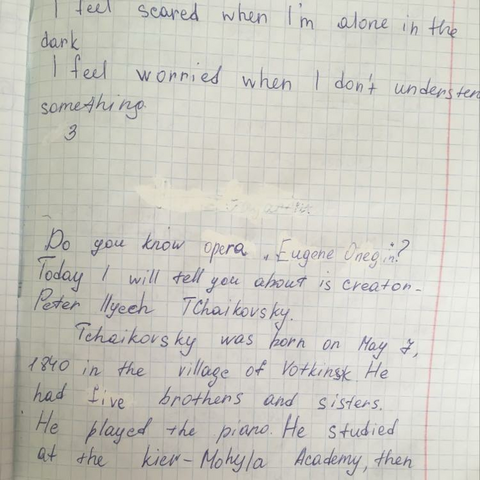 I feel scared when I'm alone in the
dark
I feel worried when I don't understen
something.
3
Do you know opera „Eugene Onegin"?
Today I will tell you about is creator-
Peter Ilyech TChaikovsky.
Tchaikovsky was born on May 7,
1840 in the village of Votkinsk. He
had five brothers and sisters.
He played the piano. He studied
at the kier-Mohyla Academy, then